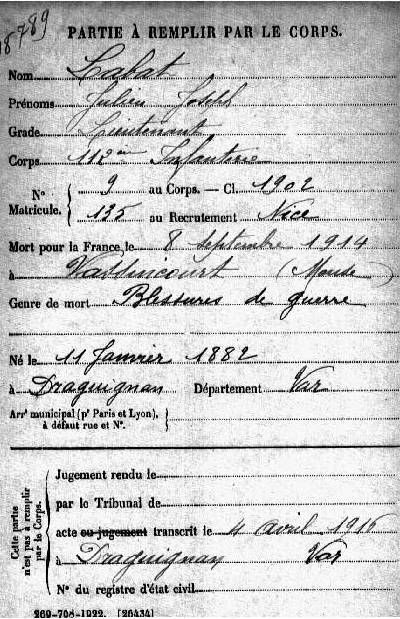 18789
PARTIE À REMPLIR PAR LE CORPS.
Nom
Prénoms Julien Joseph
Grade Lieutenant
Corps 112ème Infanterie
N° Matricule. { 9 au Corps. — Cl. 1902
135 au Recrutement Nice
Mort pour la France le 8 septembre 1914
à Vassincourt (Meuse)
Genre de mort Blessures de guerre
Né le 11 Janvier 1882
à Draguignan Département Var
Arrt municipal (pr Paris et Lyon),
à défaut rue et N°.
Cette partie
n'est pas à remplir
par le Corps.
Jugement rendu le
par le Tribunal de
acte ou jugement transcrit le 4 avril 1916
à Draguignan Var
N° du registre d'état civil
269-708-1922. [26434]